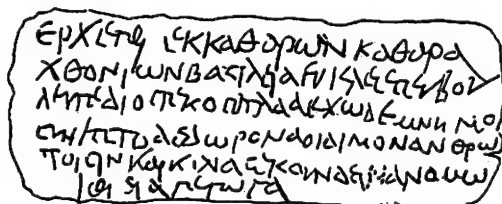 ΕΡΧΕΤΑΙ ΕΚ ΚΑΘΑΡΩΝ ΚΑΘΑΡΑ
ΧΘΟΝΙΩΝ ΒΑΣΙΛΕΙΑ ΕΥΚΛΕΕΣ ΕΥΒΟΥ
ΛΕΥ ΤΕ ΔΙΟΣ ΤΕΚΟΣ ΑΓΛΑΑ ΕΧΩ ΔΕ ΜΝΗΜΟ
ΔΩΡΟΝ ΑΟΙΔΙΜΟΝ ΑΝΘΡΩ
ΠΟΙΣΙΝ ΚΑΙΚΙΛΙΑ ΣΕΚΟΥΝΔΕΙΝΑ ΝΟΜΩ